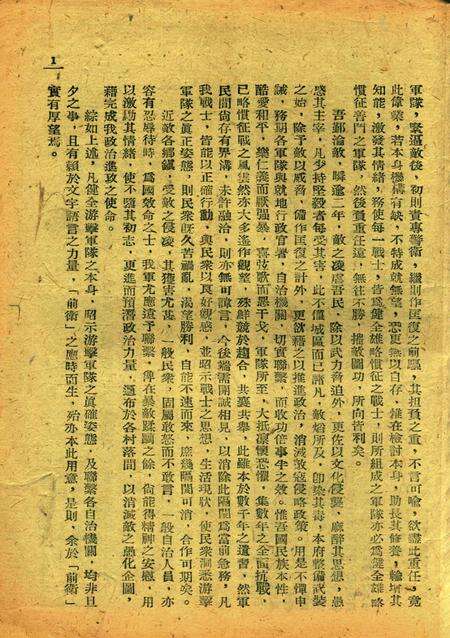 軍隊，緊逼敵後，初則責專警衛，繼則作匡復之前驅，其担負之重，不言可喻，欲盡此重任，竟
此偉業，若本身機構有缺，不特成就無望，恐更無以自存，惟在檢討本身，助長其修養，輸增其
知能，激發其情緒，務使每一戰士，皆爲健全雄略慣征之戰士，則所組成之軍隊亦必爲健全雄略
慣征善鬥之軍隊，然後負重任遠，無往不勝，摧敵關功，所向皆利矣。
吾鄉淪敵，瞬逾二年，敵之凌虐吾民，除以武力脅迫外，更佐以文化侵襲，麻醉其思想，愚
惑其主宰，凡少持堅毅者每受其害，此不僅城區而已諸凡，敵焰所及，卽染其毒，本府整備武裝
之始，除予敵以威脅，備作匡復之計外，更欲藉之以推進政治，消滅敵寇侵略政策。用是不憚申
誡，務期各軍隊與就地行政官者，自治機關，切實聯繫，而收功倍事半之效，惟吾國民族本性，
酷愛和平，樂仁義而厭强暴，喜弦歌而惡干戈，軍隊所至，大抵凛懷恐懼，集數年之全面抗戰，
已略慣征戰之風雲然亦大多遙作觀望，殊鮮競於趨合，共襄共舉，此雖本於數千年之遺習，然軍
民間尙存有界溝，未許融洽，則亦無可諱言，今後端需開誠相見，以消除此隔閡爲當前急務，凡
我戰士，皆能以正確行動，與民衆以良好觀感，並昭示戰士之思想，生活現狀，使民衆洞悉游擊
軍隊之眞正姿態，則民衆旣久苦禍亂，渴望勝利，自能不速而來，庶幾隔閡可消，合作可期矣。
近敵各鄉鎮，受敵之侵凌，其獨害尤甚，一般民衆，固屬敢怒而不敢言，一般自治人員，亦
容有忍辱待時，爲國效命之士，我軍尤應遠予聯繫，俾在暴敵蹂躪之餘，尙能得精神之安慰，用
以激勵其情緒，使不隳其初志，更進而預潛政治力量，遍布於各村落間，以消滅敵之愚化企圖，
藉完成我政治進攻之使命。
綜如上述，凡健全游擊軍隊之本身，昭示游擊軍隊之眞確姿態，及聯繫各自治機關，均非旦
夕之事，且有賴於文字語言之力量，「前衛」之應時而生，殆亦本此用意，是則，余於「前衛」
實有厚望焉。
1